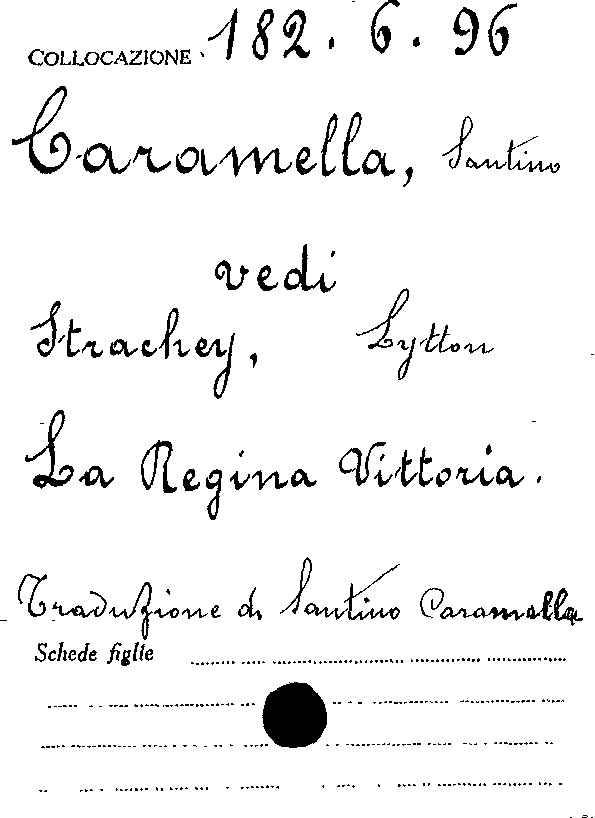 COLLOCAZIONE 182. 6. 96
Caramella, Santino
vedi
Strachey, Lytton
La Regina Vittoria.
Traduzione di Santino Caramella
Schede figlie